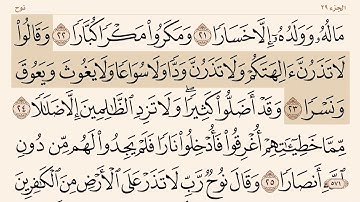 الجزء ٢٩ نوح
مَالُهُۥ وَوَلَدُهُۥٓ إِلَّا خَسَارٗا ٢١ وَمَكَرُواْ مَكۡرٗا كُبَّارٗا ٢٢ وَقَالُواْ
لَا تَذَرُنَّ ءَالِهَتَكُمۡ وَلَا تَذَرُنَّ وَدّٗا وَلَا سُوَاعٗا وَلَا يَغُوثَ وَيَعُوقَ
وَنَسۡرٗا ٢٣ وَقَدۡ أَضَلُّواْ كَثِيرٗاۖ وَلَا تَزِدِ ٱلظَّٰلِمِينَ إِلَّا ضَلَٰلٗا ٢٤
مِّمَّا خَطِيٓـَٰٔتِهِمۡ أُغۡرِقُواْ فَأُدۡخِلُواْ نَارٗا فَلَمۡ يَجِدُواْ لَهُم مِّن دُونِ
ٱللَّهِ أَنصَارٗا ٢٥ وَقَالَ نُوحٞ رَّبِّ لَا تَذَرۡ عَلَى ٱلۡأَرۡضِ مِنَ ٱلۡكَٰفِرِينَ
٥٧١